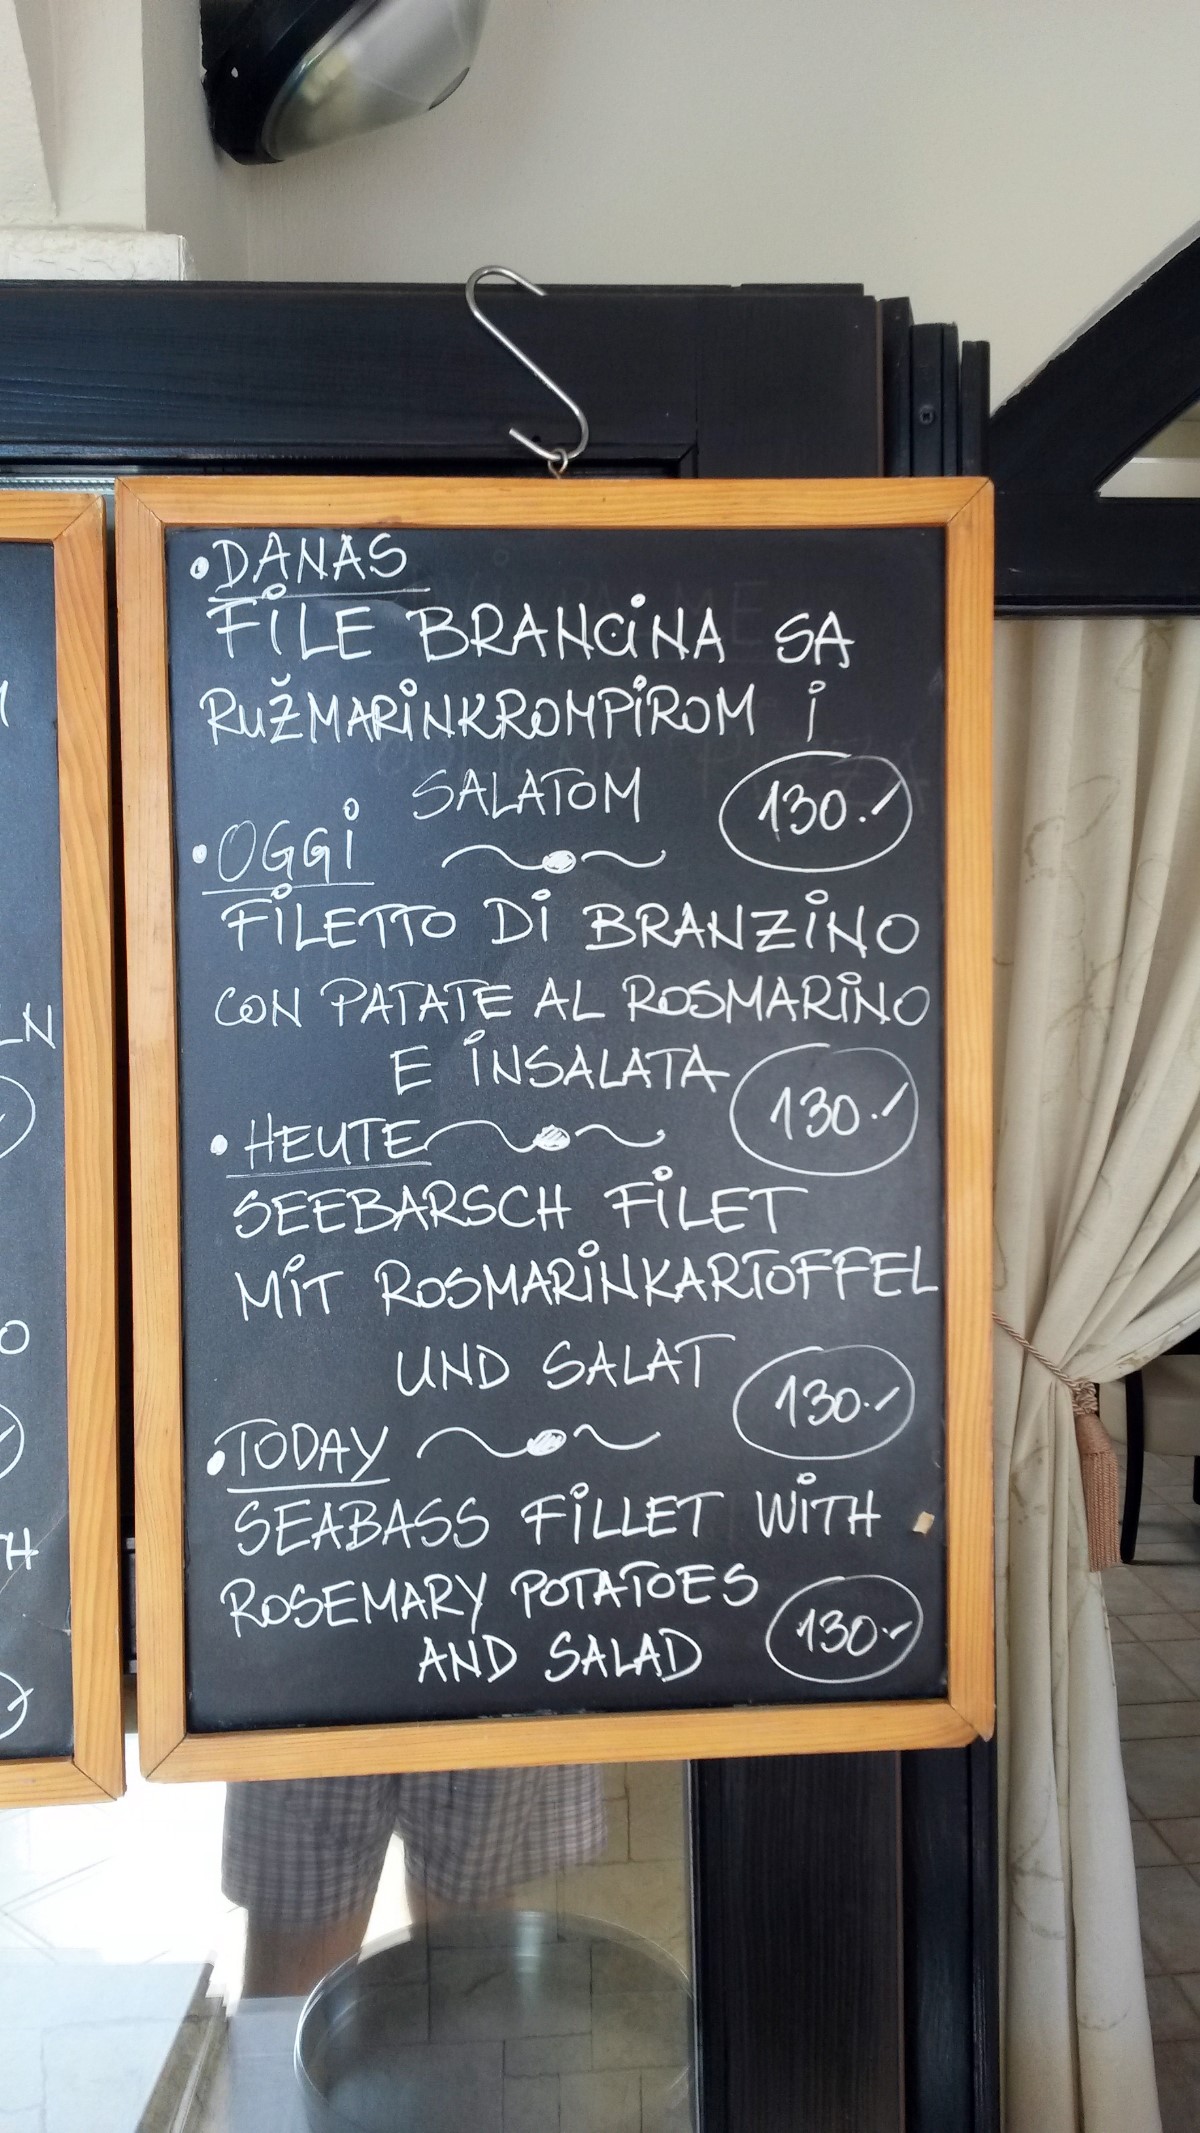 • DANAS
FILE BRANCINA SA
RUŽMARINKROMPIROM i
SALATOM 130.-
• OGGI
FILETTO DI BRANZINO
CON PATATE AL ROSMARINO
E INSALATA 130.-
• HEUTE
SEEBARSCH FILET
MIT ROSMARINKARTOFFEL
UND SALAT 130.-
• TODAY
SEABASS FILLET WITH
ROSEMARY POTATOES
AND SALAD 130.-
LN
O
TH